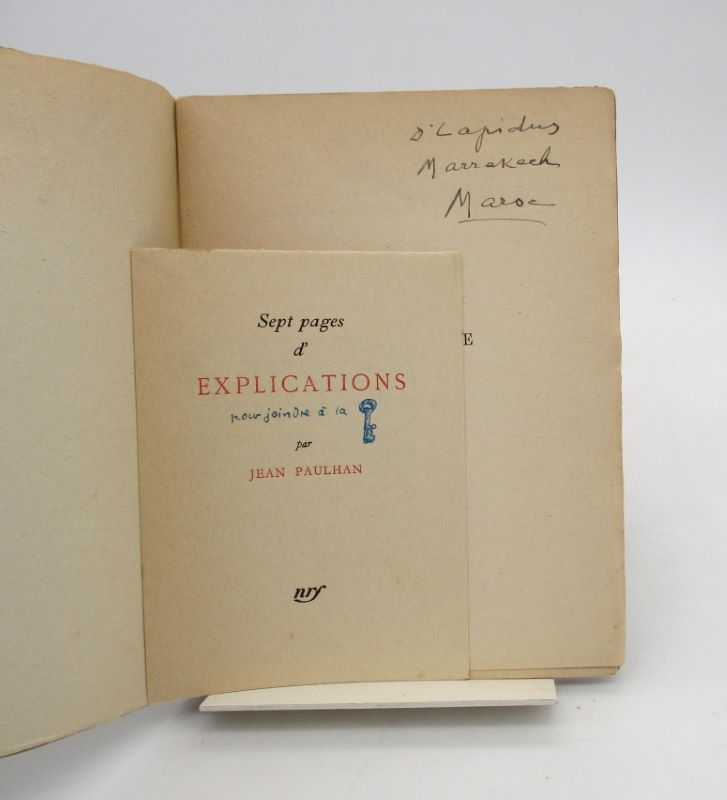 Dr Lapidus
Marrakech
Maroc
E
Sept pages
d'
EXPLICATIONS
pour joindre à la
par
JEAN PAULHAN
nrf